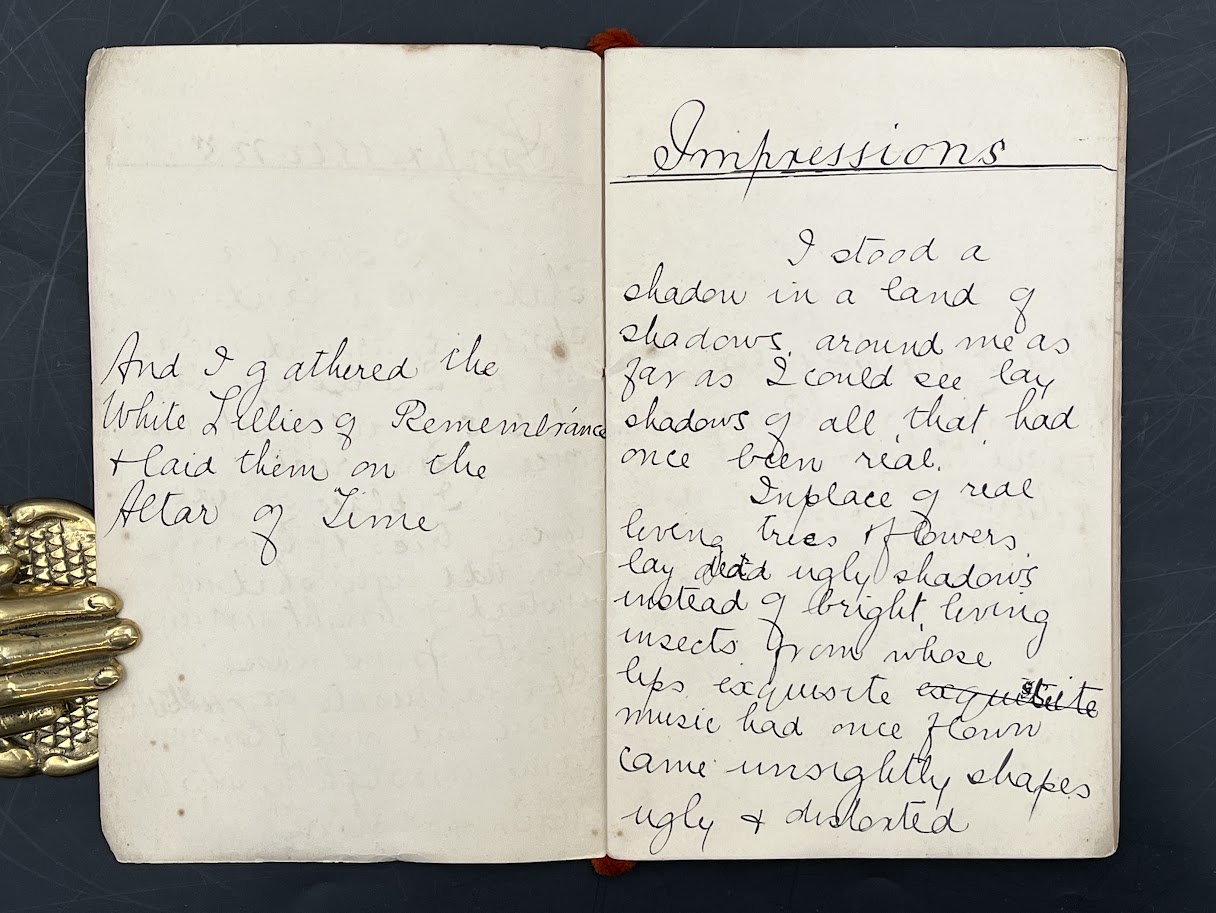 And I gathered the
White Lillies of Remembrance
& laid them on the
Altar of Time
Impressions
I stood a
shadow in a land of
shadows, around me as
far as I could see lay
shadows of all that had
once been real.
In place of real
living trees & flowers
lay dead ugly shadows
instead of bright, living
insects from whose
lips exquisite exquisite
music had once flown
came unsightly shapes
ugly & distorted